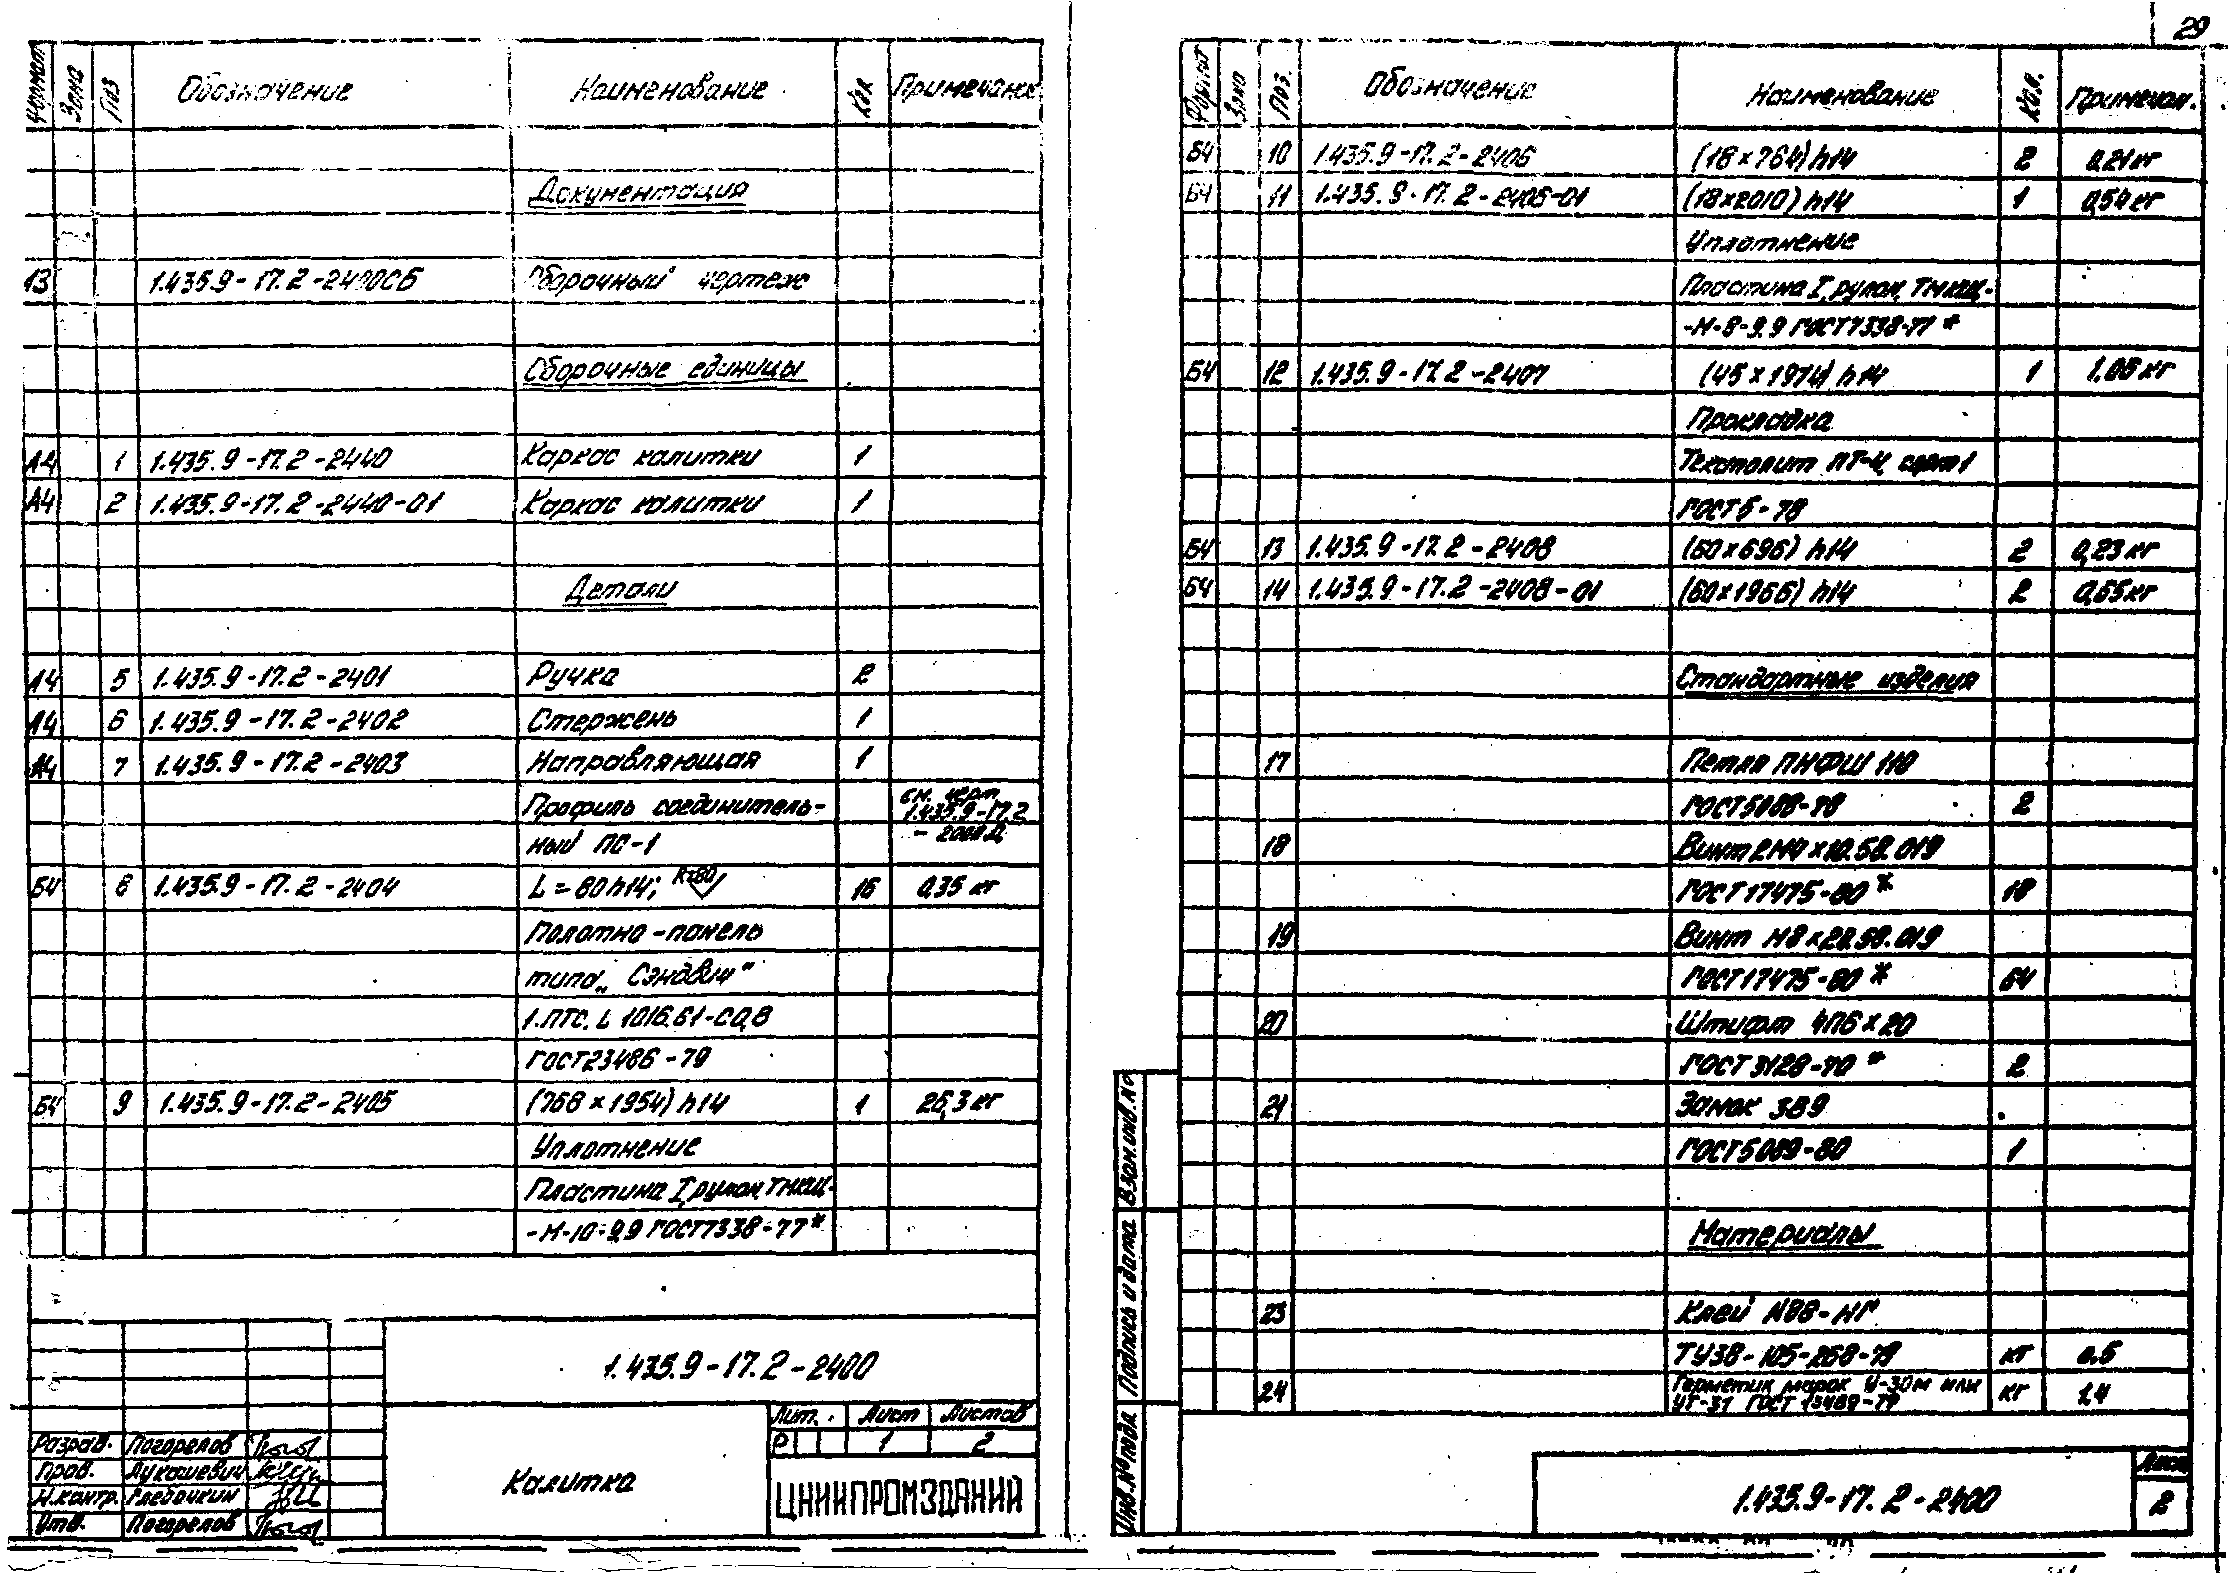 29
Формат Зона Поз Обозначение Наименование Кол Примечание
Документация
13 1.435.9-17.2-2400СБ Сборочный чертеж
Сборочные единицы
А4 1 1.435.9-17.2-2440 Каркас калитки 1
А4 2 1.435.9-17.2-2440-01 Каркас калитки 1
Детали
А4 5 1.435.9-17.2-2401 Ручка 2
А4 6 1.435.9-17.2-2402 Стержень 1
А4 7 1.435.9-17.2-2403 Направляющая 1
Профиль соединитель- см. черт 1.435.9-17.2
ный ПС-1
БЧ 8 1.435.9-17.2-2404 L=80h14; 16 0,35 кг
Полотно-панель
типа „Сэндвич"
1.ПТС. L 1016.61-С0,8
ГОСТ23486-79
БЧ 9 1.435.9-17.2-2405 (768×1954)h14 1 26,3 кг
Уплотнение
Пластина I, рулон, ТМКЩ-
-М-10-9,9 ГОСТ7338-77*
1.435.9-17.2-2400
Лит. Лист Листов
Р 1 2
Разраб. Погорелов
Пров. Лукашевич
Н.контр. Глебочкин
Утв. Погорелов
Калитка
ЦНИИПРОМЗДАНИЙ
Формат Зона Поз. Обозначение Наименование Кол. Примечан.
БЧ 10 1.435.9-17.2-2406 (18×764)h14 2 0,21 кг
БЧ 11 1.435.9-17.2-2406-01 (18×2010)h14 1 0,54 кг
Уплотнение
Пластина I, рулон, ТМКЩ-
-М-8-9.9 ГОСТ7338-77*
БЧ 12 1.435.9-17.2-2407 (45×1974)h14 1 1.06 кг
Прокладка
Текстолит ПТ-4, сорт 1
ГОСТ5-78
БЧ 13 1.435.9-17.2-2408 (60×696)h14 2 0,23 кг
БЧ 14 1.435.9-17.2-2408-01 (60×1966)h14 2 0,65 кг
Стандартные изделия
17 Петля ПНФШ 110
ГОСТ5088-78 2
18 Винт 2М4×10.58.019
ГОСТ17475-80* 18
19 Винт М8×20.58.019
ГОСТ17475-80* 64
20 Штифт 4П6×20
ГОСТ 3128-70* 2
21 Замок ЗВ9
ГОСТ5089-80 1
Материалы
23 Клей №88-НГ
ТУ38-105-268-79 кг 0.6
24 Герметик марок У-30м или
УТ-31 ГОСТ 13489-79 кг 1.4
Инв.№ подл Подпись и дата Взам.инв.№
1.435.9-17.2-2400
Лист
2